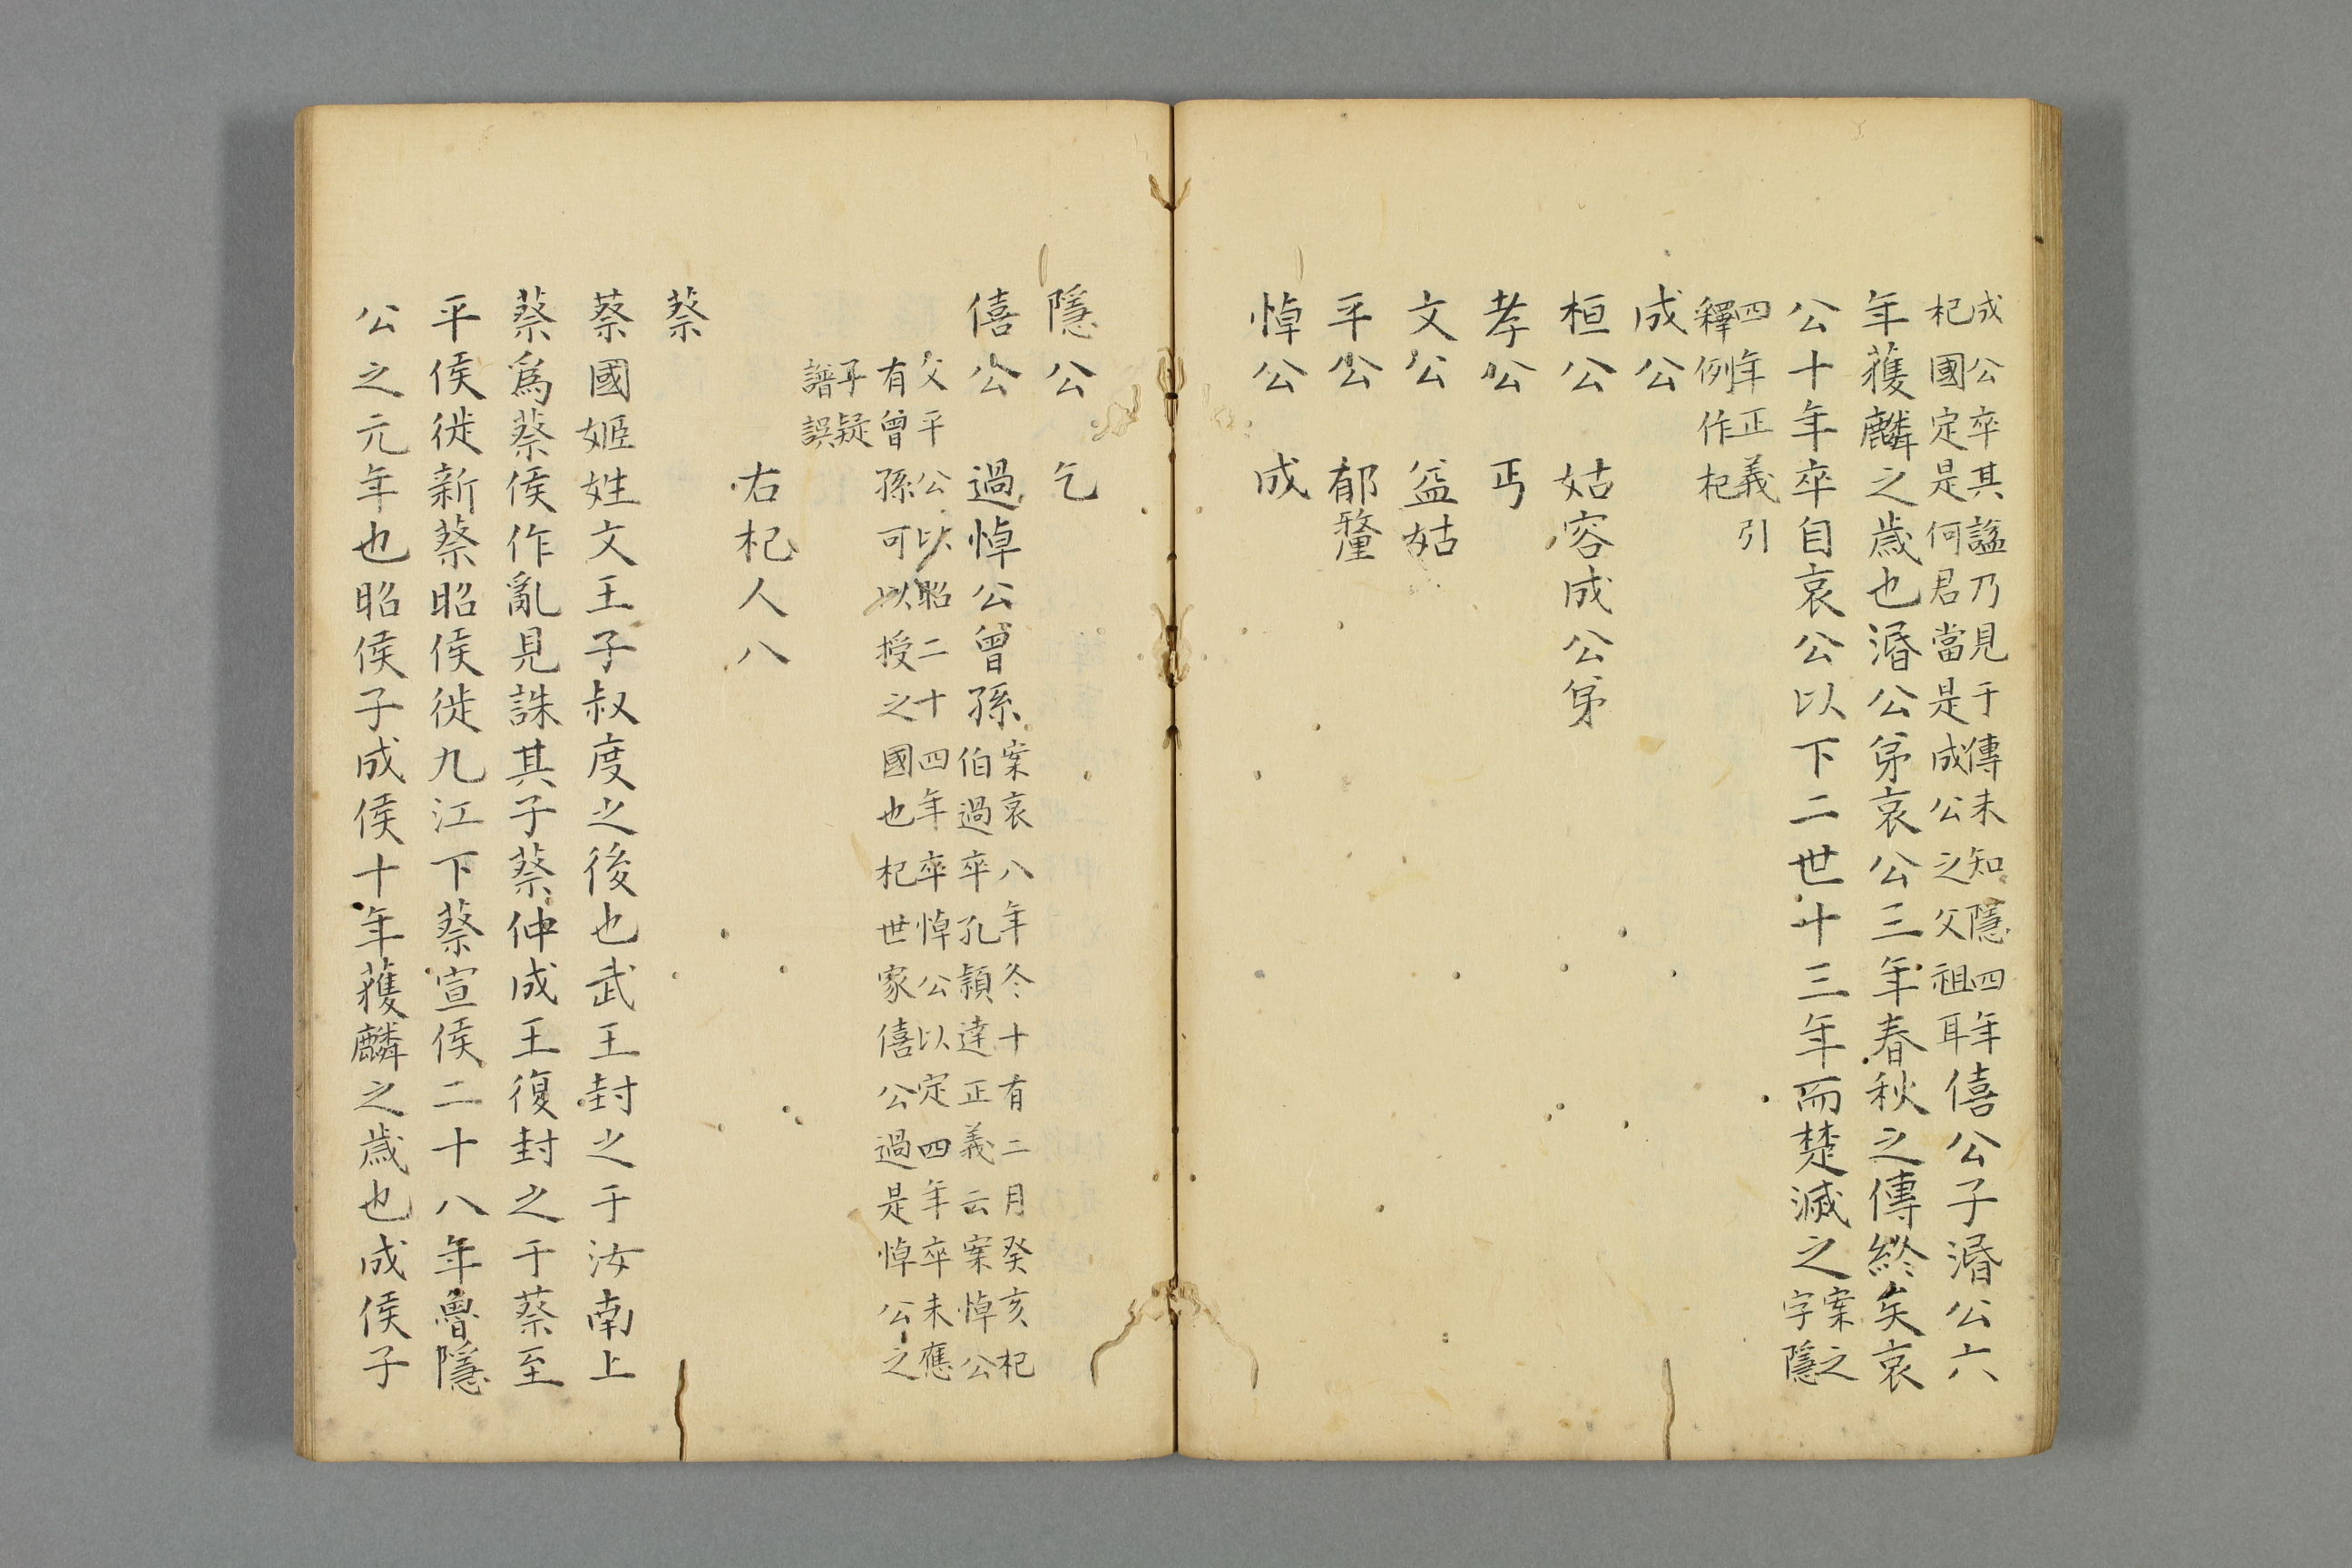 成公卒其諡乃見于傳未知隱四年
杞國定是何君當是成公之父祖耳
僖公子湣公六
年獲麟之歲也湣公弟哀公三年春秋之傳終矣哀
公十年卒自哀公以下二世十三年而楚滅之
案之
字隱
四年正義引
釋例作杞
成公
桓公 姑容成公弟
孝公 丐
文公 益姑
平公 郁釐
悼公 成
隱公 乞
僖公 過悼公曾孫
案哀八年冬十有二月癸亥杞
伯過卒孔穎達正義云案悼公
父平公以昭二十四年卒悼公以定四年卒未應
有曾孫可以授之國也杞世家僖公過是悼公之
子疑
譜誤
右杞人八
蔡
蔡國姬姓文王子叔度之後也武王封之于汝南上
蔡爲蔡侯作亂見誅其子蔡仲成王復封之于蔡至
平侯徙新蔡昭侯徙九江下蔡宣侯二十八年魯隱
公之元年也昭侯子成侯十年獲麟之歲也成侯子